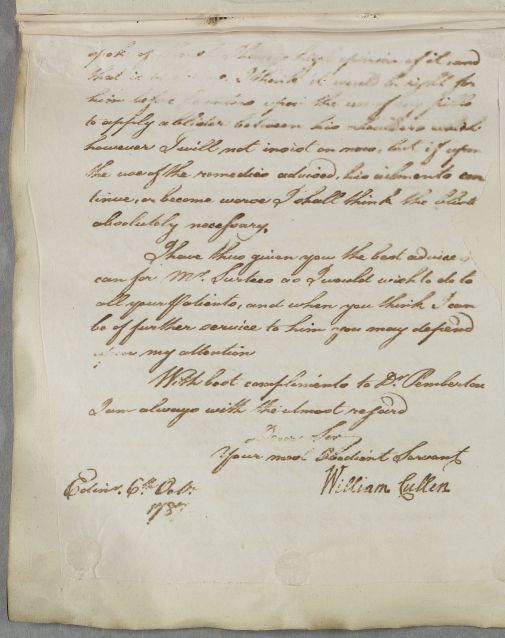 of it, and
that is
him before he enters upon the use of any
to apply a blister between his shoulders which
however I will not insist on now, but if upon
the use of the remedies advised, his ailments con
tinue, or become worse I shall think the
absolutely necessary.
I have thus given you the best advice I
can for Mr. Surtees as I would wish to do to
all your Patients, and when you think I can
be of further service to him you may depend
upon my attention
With best compliments to Dr. Pemberton
I am always with the utmost regard
Dear Sir
Your most Obedient Servant
William Cullen
Edinr. 6th Octr.